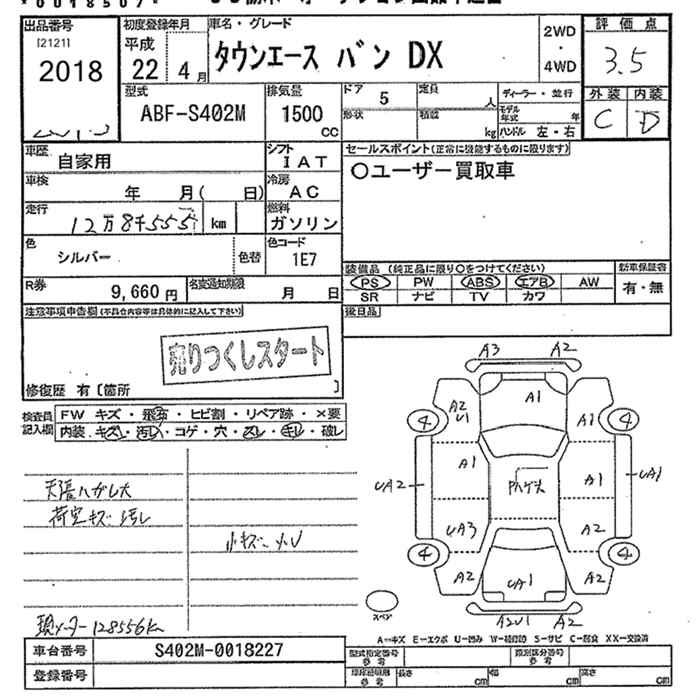 出品番号
[2121]
2018
初度登録年月
平成
22年 4月
車名・グレード
タウンエース バン DX
2WD
・
4WD
評価点
3.5
外装 内装
C D
型式
ABF-S402M
排気量
1500
CC
ドア
5
定員
人
形状
積載
kg
ディーラー・並行
モデル年式 年
ハンドル 左・右
車歴
自家用
シフト
IAT
車検
年 月( 日)
冷房
AC
走行
12万8千555 km
燃料
ガソリン
色
シルバー
色替
色コード
1E7
セールスポイント(正常に機能するものに限ります)
○ユーザー買取車
R券
9,660円
名変通知期限
月 日
装備品 (純正品に限り○をつけてください)
PS PW ABS エアB AW
SR ナビ TV カワ
新車保証書
有・無
後日品
注意事項申告欄(不具合内容等は具体的に記入して下さい)
売りつくしスタート
修復歴 有〔箇所 〕
検査員
記入欄
FW キズ・飛石・ヒビ割・リペア跡・×要
内装・キズ・汚れ・コゲ・穴・スレ・キレ・破レ
天張ハガレ大
荷室キズ汚レ
小キズ小U
現メーター128556km
A3 A2
A2
U1
A1
A1
4
4
A1
A1
UA2
UA1
UA3
A2
4
4
A2
UA1
A2
スペア
A2U1 A2
A=キズ E=エクボ U=凹み W=補修跡 S=サビ C=腐食 XX=交換済
車台番号
S402M-0018227
登録番号
型式指定番号
参考
類別区分番号
参考
長さ
cm
幅
cm
高さ
cm